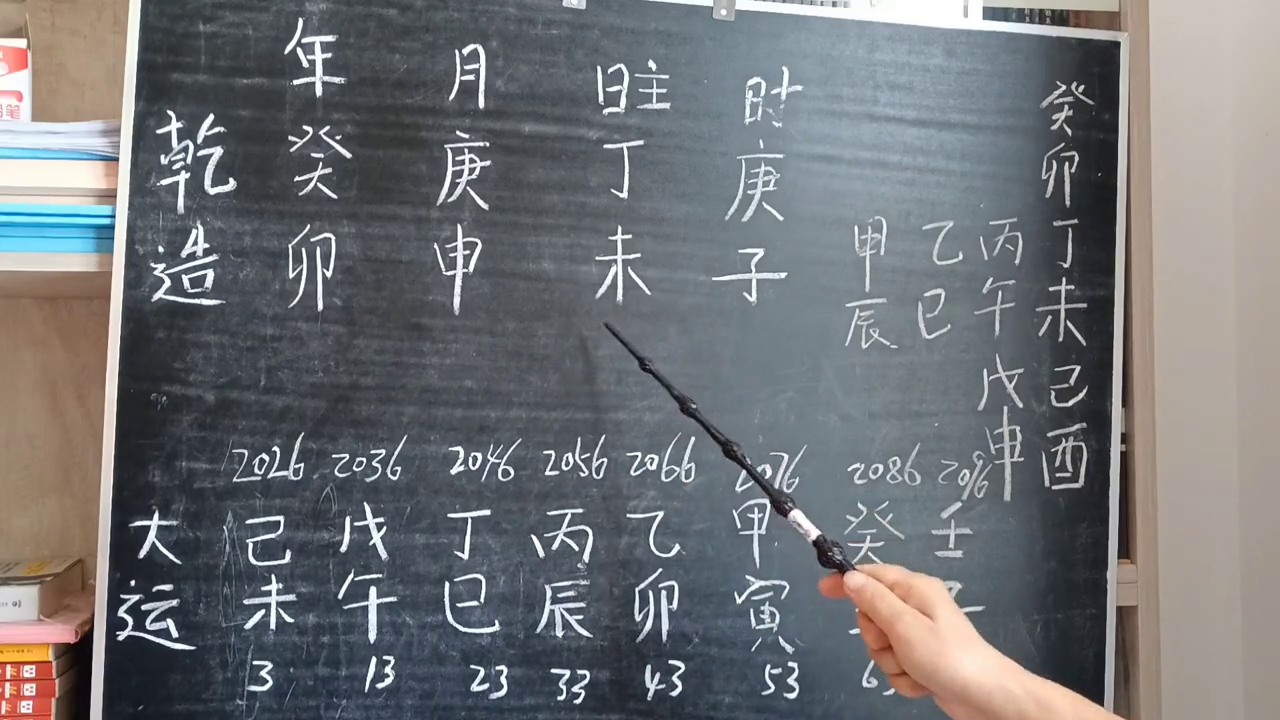 年 月 日主 时
乾造
癸 庚 丁 庚
卯 申 未 子
癸卯丁未己酉
丙午戊申
乙巳
甲辰
2026 2036 2046 2056 2066 2076 2086 2096
大运
己 戊 丁 丙 乙 甲 癸 壬
未 午 巳 辰 卯 寅
3 13 23 33 43 53